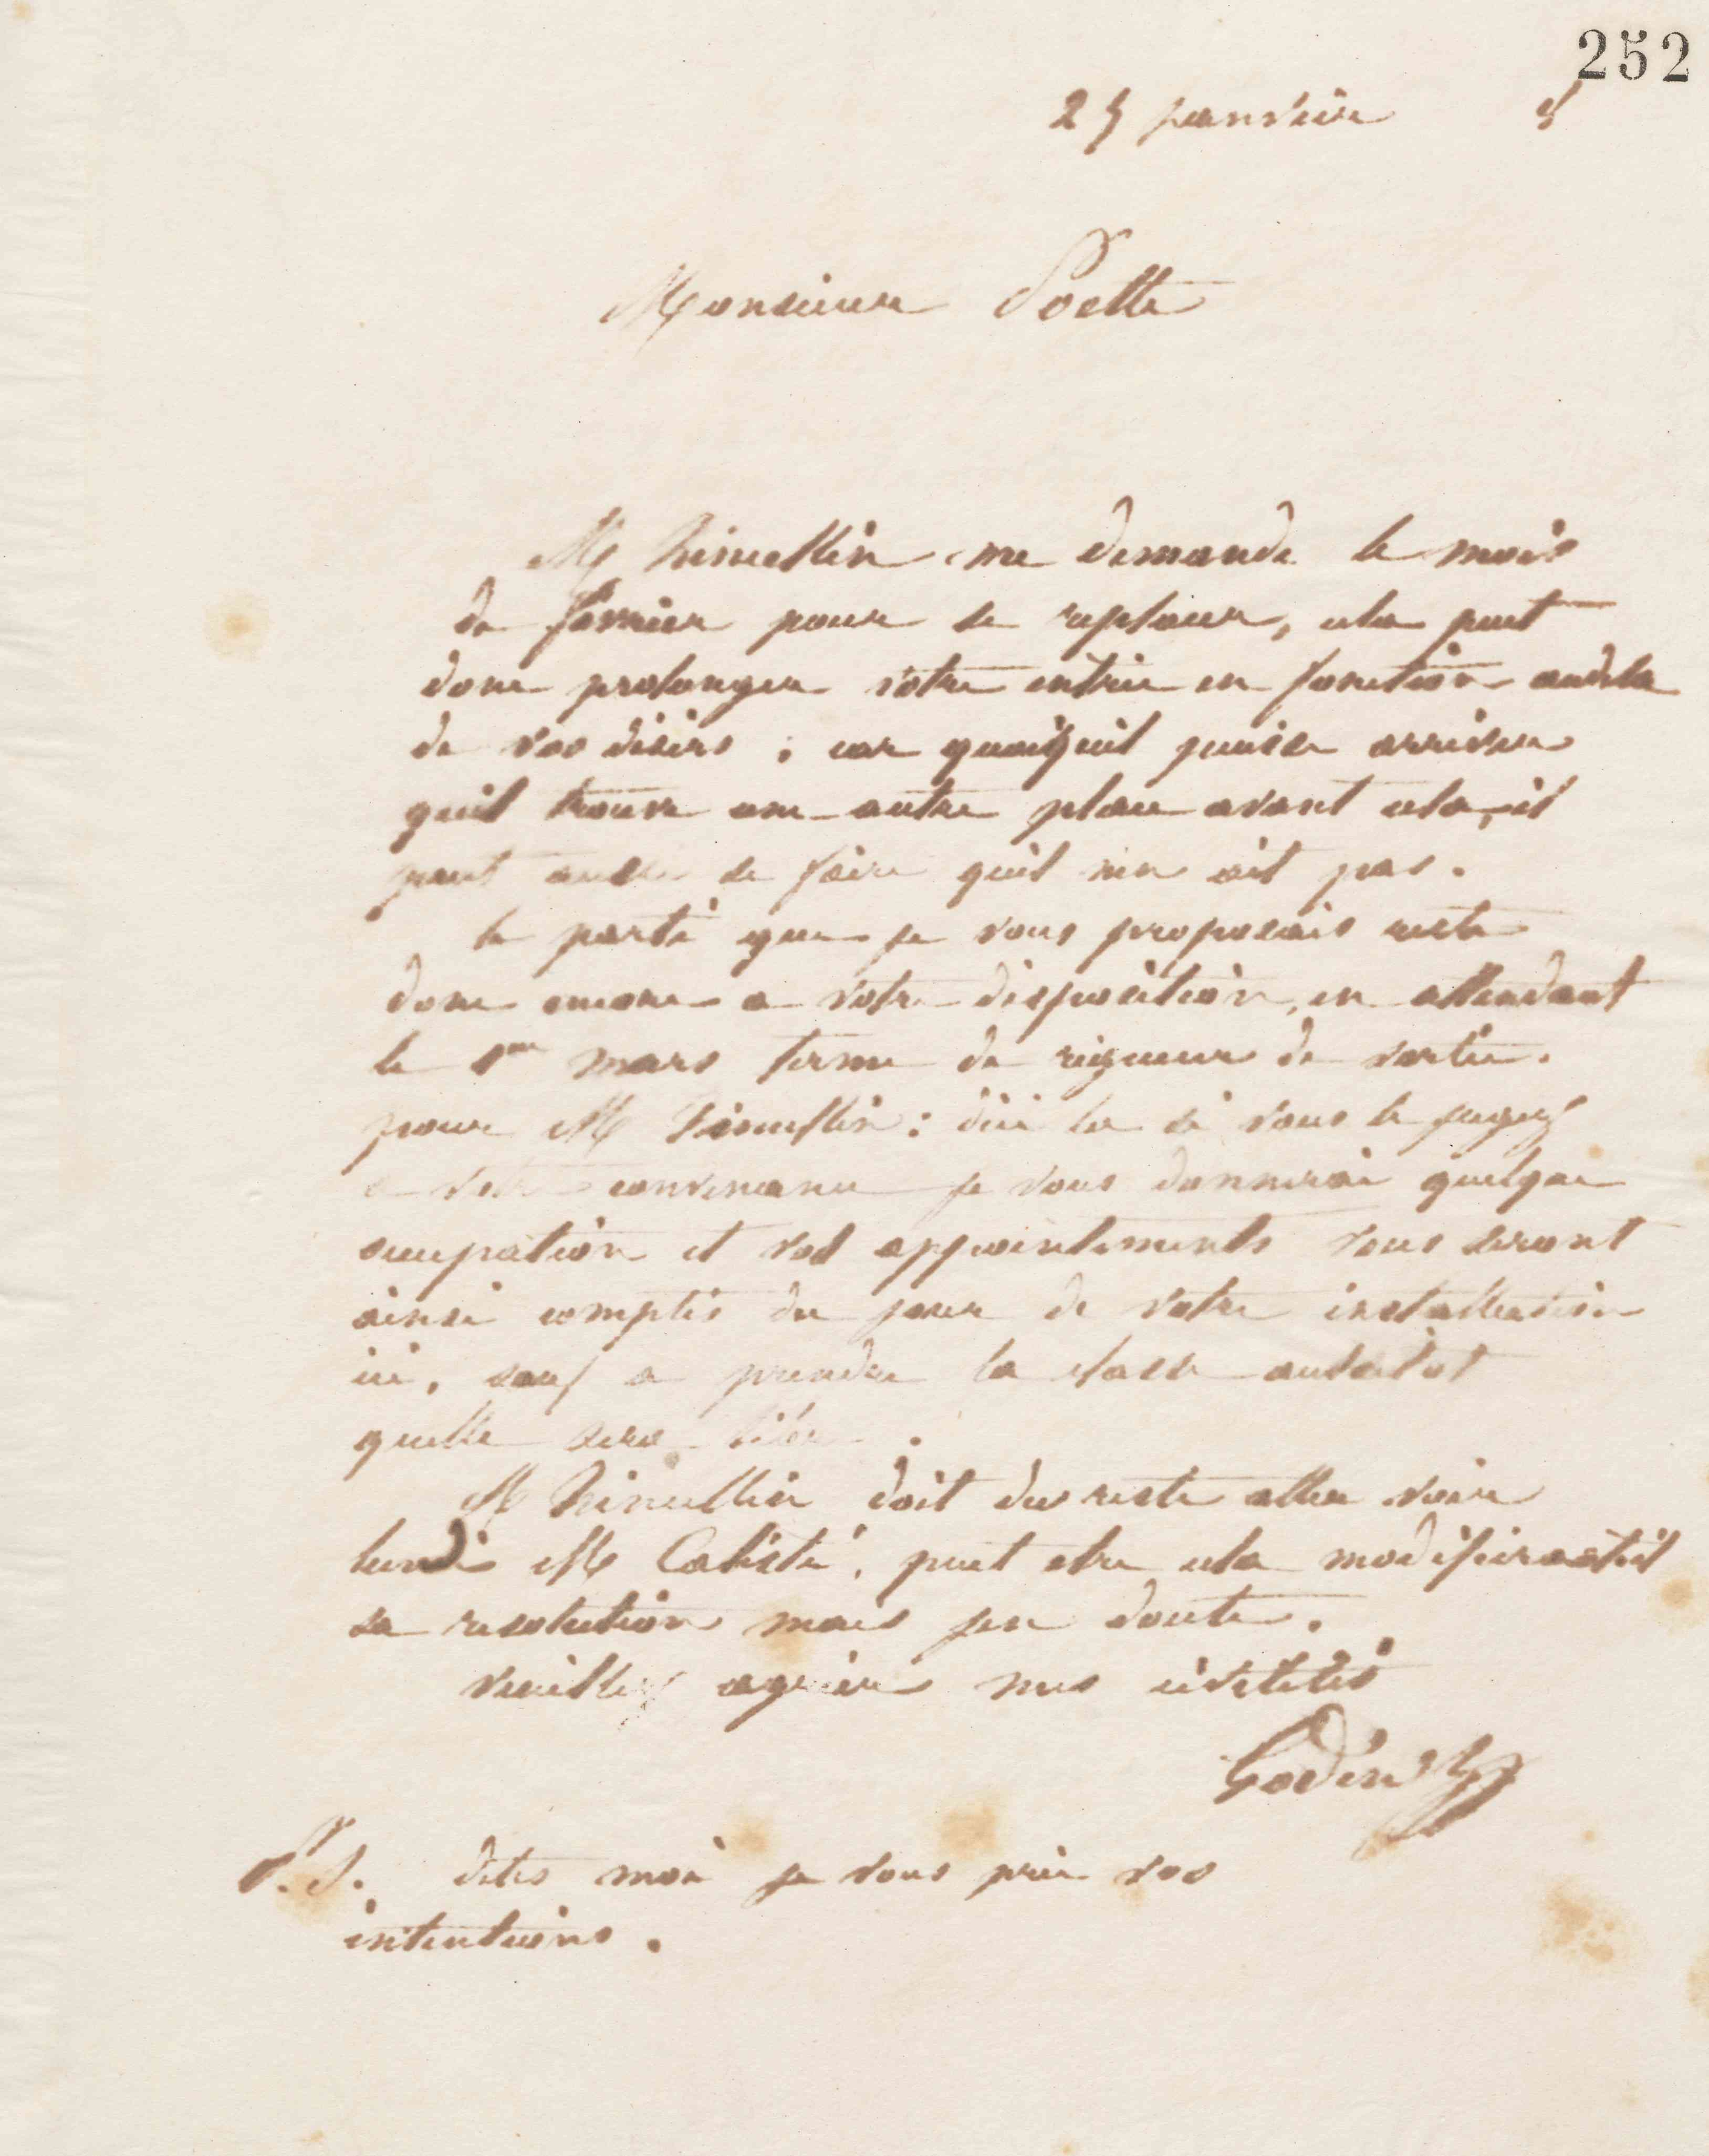 252
25 janvier 5
Monsieur Poette
M me demande le mois
de février pour se replacer, cela peut
donc prolonger votre entrée en fonction audela
de vos désirs ; car quoiquil puisse arriver
quil trouve une autre place avant cela, il
peut aussi se faire quil nen ait pas.
le parti que je vous proposais reste
donc encore a votre disposition, en attendant
le 1er mars terme de rigueur de sortie
pour M : dici la si vous le jugez
a votre convenance je vous donnerai quelque
occupation et vos appointements vous seront
ainsi comptés du jour de votre installation
ici, sauf a prendre la classe aussitot
quelle sera libre.
M doit du reste aller voir
lundi M Calisté, peut etre cela modifierastil
sa resolution mais jen doute.
veuillez agréer mes civilités
Godin
P.S. dites moi je vous prie vos
intentions.